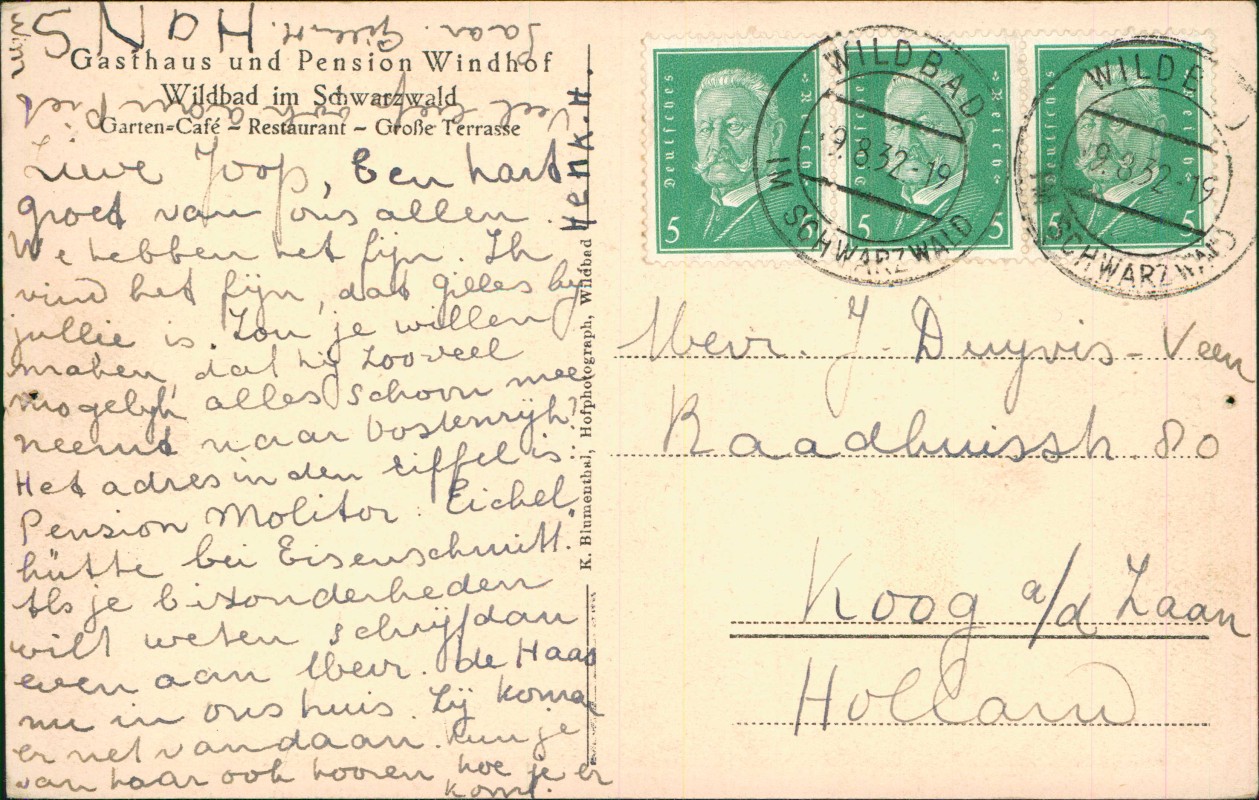 Gasthaus und Pension Windhof
Wildbad im Schwarzwald
Garten-Café – Restaurant – Große Terrasse
Lieve Joop, Een hart
groet van ons allen.
We hebben het fijn. Ik
vind het fijn, dat Gilles bij
jullie is. Zou je willen
maken, dat hij zooveel
mogelijk alles schoon mee
neemt naar Oostenrijk?
Het adres in den Eiffel is:
Pension Molitor Eichel
hütte bei Eisenschmitt.
Als je bizonderheden
wilt weten schrijf dan
even aan Mevr. de Haas
nu in ons huis. Zij komt
er net vandaan. Kun je
van haar ook hooren, hoe je er
komt.
Wim
HANS
Jaan. Gilles H.
Veel liefs ook aan Piet
Henk.H.
K. Blumenthal, Hofphotograph, Wildbad
Deutsches Reich
5 5
Deutsches Reich
5 5
Deutsches Reich
5 5
WILDBAD
9.8.32.-19
IM SCHWARZWALD
WILDB
9.8.32.-19
IM SCHWARZWALD
Mevr. J. Duyvis-Veen
Raadhuisstr. 80
Koog a/d Zaan
Holland